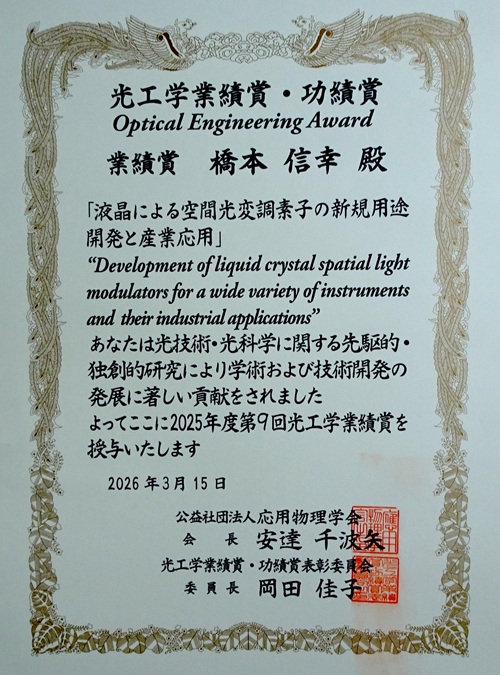 光工学業績賞・功績賞
Optical Engineering Award
業績賞 橋本 信幸 殿
「液晶による空間光変調素子の新規用途
開発と産業応用」
“Development of liquid crystal spatial light
modulators for a wide variety of instruments
and their industrial applications”
あなたは光技術・光科学に関する先駆的・
独創的研究により学術および技術開発の
発展に著しい貢献をされました
よってここに2025年度第9回光工学業績賞を
授与いたします
2026年3月15日
公益社団法人応用物理学会
会長 安達 千波矢
光工学業績賞・功績賞表彰委員会
委員長 岡田 佳子